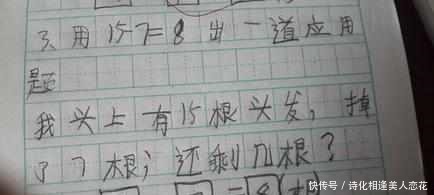 3、用15-7=8出一道应用
题
我头上有15根头发，掉
了7根，还剩几根？
快传号/诗化相逢美人恋花